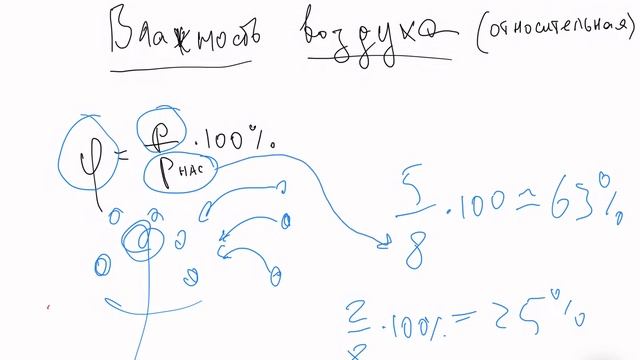 Влажность воздуха (относительная)
φ = p/pнас · 100%
5/8 · 100 ≈ 63%
2/8 · 100% = 25%